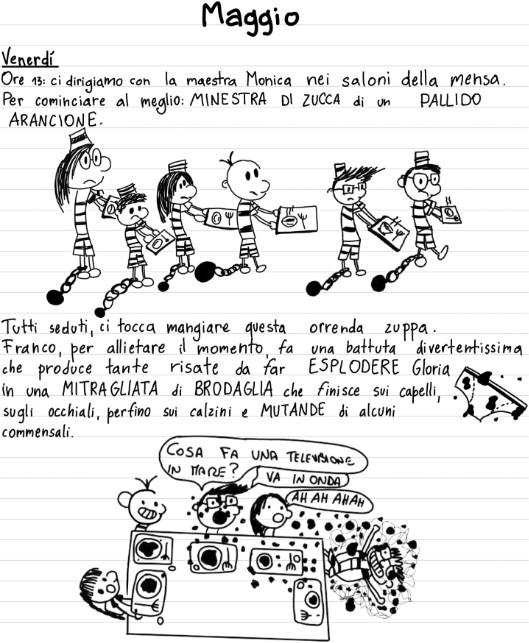 Maggio
Venerdí
Ore 13: ci dirigiamo con la maestra Monica nei saloni della mensa.
Per cominciare al meglio: MINESTRA DI ZUCCA di un PALLIDO
ARANCIONE.
Tutti seduti, ci tocca mangiare questa orrenda zuppa.
Franco, per allietare il momento, fa una battuta divertentissima
che produce tante risate da far ESPLODERE Gloria
in una MITRAGLIATA di BRODAGLIA che finisce sui capelli,
sugli occhiali, perfino sui calzini e MUTANDE di alcuni
commensali.
COSA FA UNA TELEVISIONE
IN MARE?
VA IN ONDA
AH AH AHAH